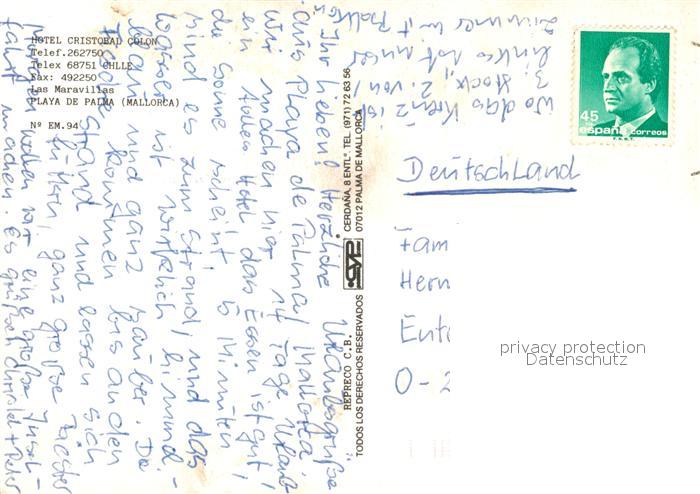 HOTEL CRISTOBAL COLON
Telef.262750
Telex 68751 CHLLE
Fax: 492250
Las Maravillas
PLAYA DE PALMA (MALLORCA)
Nº EM.94
Ihr Lieben! Herzliche Urlaubsgrüße
aus Playa de Palma / Mallorca
wir machen hier 14 Tage Urlaub
ein tolles Hotel das Essen ist gut,
die Sonne scheint. 5 Minuten
sind es zum Strand, und das
Wasser ist wirklich himmel-
blau und ganz sauber. Die
Fische kommen bis an den
Strand und lassen sich
füttern, ganz große
wollen wir eine große Insel-
fahrt machen. Es grüßen
wo das Kreuz ist
3. Stock, 2. von
links ist unser
Zimmer mit Balkon
REPRECO C.B.
TODOS LOS DERECHOS RESERVADOS
CERDAÑA, 8 ENTL.º TEL. (971) 72 63 56
07012 PALMA DE MALLORCA
45
españa correos
Deutschland
Fam
Hern
O-2
privacy protection
Datenschutz